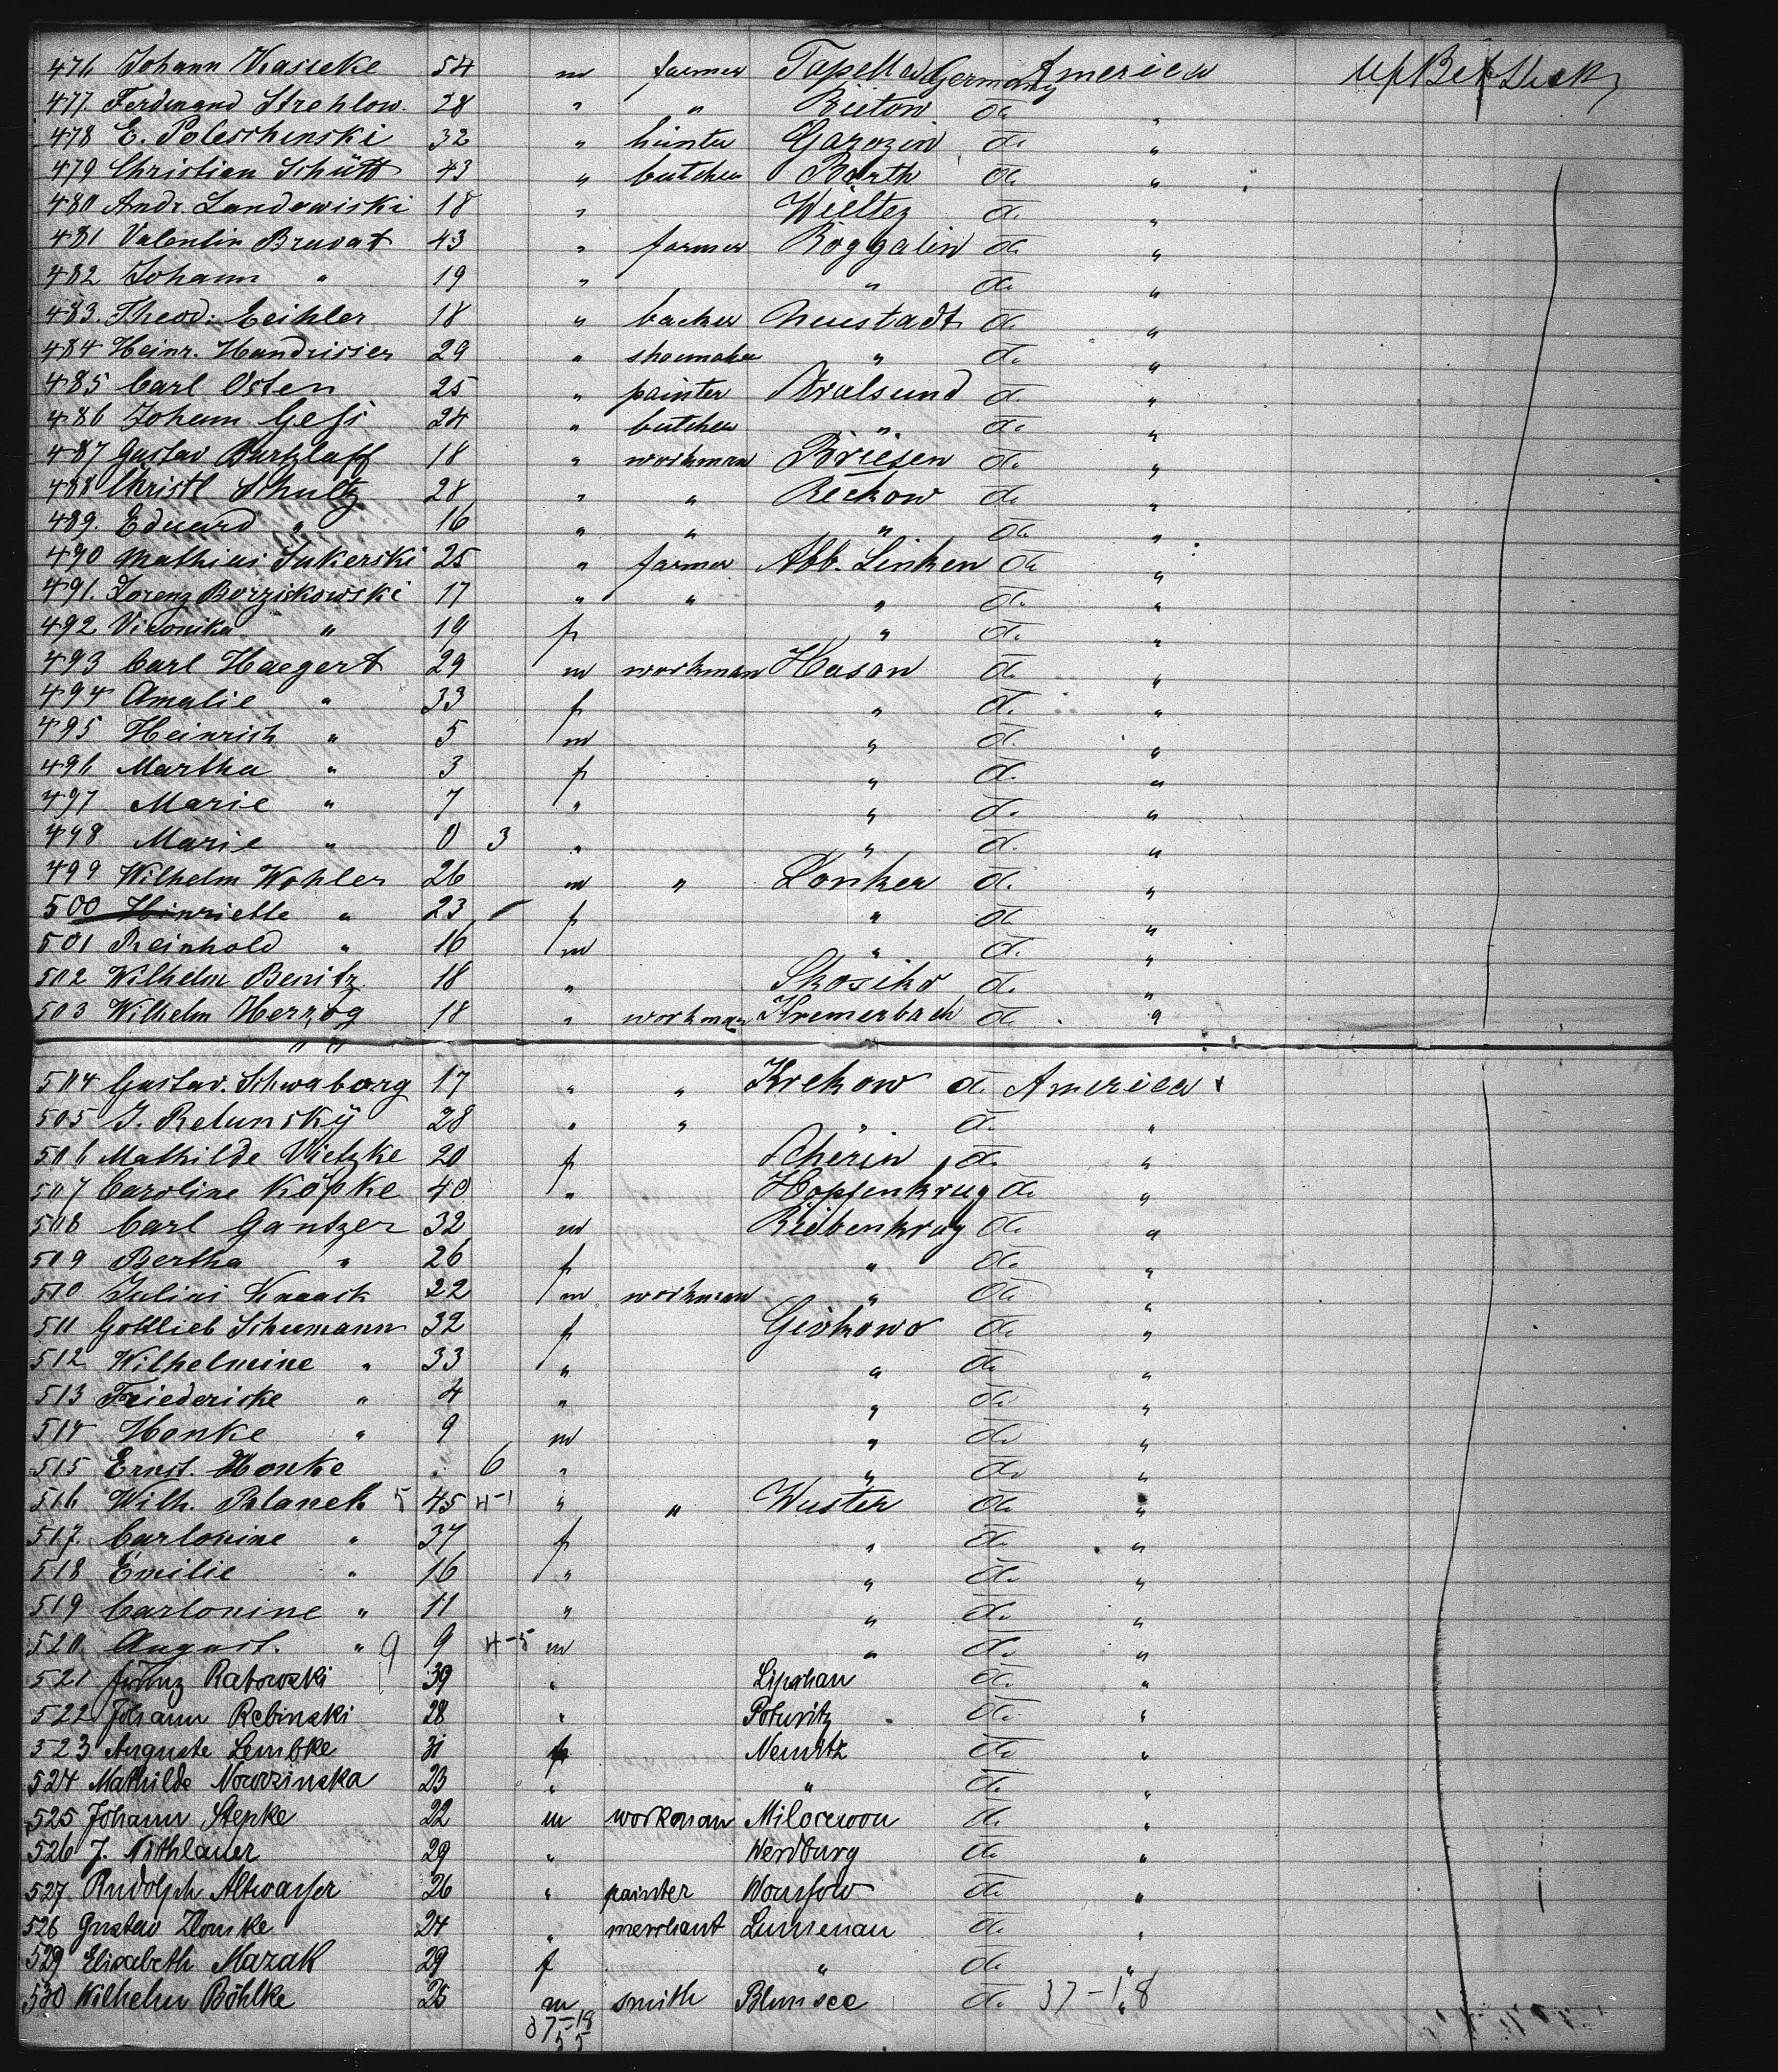 476 Johann Kasseke 54 m farmer Tapella Germany America up Bet Deck
477. Ferdinand Strehlow. 28 " " Bütow do "
478 E. Poleschenski 32 " hunter Garozin do "
479 Christian Schütt 43 " butcher Barth do "
480 Andr. Landowiski 18 " Wieltez do "
481 Valentin Bruvat 43 " farmer Roggalin do "
482 Johann " 19 " " do "
483. Theod: Eeihler 18 " backer Neustadt do "
484 Heinr. Handrisser 29 " shoemaker " do "
485 Carl Osten 25 " painter Stralsund do "
486 Johann Gesi 24 " butcher " do "
487 Gustav Burtzlaff 18 " workman Briesen do "
488 Christl Schultz 28 " " Reckow do "
489. Eduard " 16 " " " do "
490 Mathias Sukerski 25 " farmer Abb. Linken do "
491. Lorenz Borziskowski 17 " " " do "
492 Vironika " 19 f " do "
493 Carl Haegert 29 m workman Hasan do "
494 Amalie " 33 f " do "
495 Heinrich " 5 m " do "
496 Martha " 3 f " do "
497 Marie " 7 " " do "
498 Marie " 0 3 " " do "
499 Wilhelm Wohler 26 m " Lonker do "
500 Hinriette " 23 f " do "
501 Reinhold " 16 m " do "
502 Wilhelm Benitz 18 " Skosiko do "
503 Wilhelm Herzog 18 " workman Kremerbach do "
" "
504 Gustav. Schwaborg 17 " " Krekow do America
505 J. Retunsky 28 " " " do "
506 Mathilde Vietzke 20 f Scherin do "
507 Caroline Köpke 40 " Hopfenkrug do "
508 Carl Gantzer 32 m Riebenkrug do "
509 Bertha " 26 f " do "
510 Julius Knaack 22 m workman " do "
511 Gottlieb Schumann 32 f Girkowo do "
512 Wilhelmine " 33 " " do "
513 Friedericke " 4 " " do "
514 Honke " 9 m " do "
515 Ernst. Honke 6 " " do "
516 Wilh. Blanek 5 45 4-1 " " Wuster do "
517. Carlonine " 37 f " do "
518 Emilie " 16 " " do "
519 Carlonine " 11 " " do "
520 August. " 9 9 4-5 m " do "
521 Franz Ratowski 39 " Lipschau do "
522 Johann Rebinski 28 " Poturitz do "
523 Auguste Lembke 31 f Nemitz do "
524 Mathilde Nowrzinska 23 " " do "
525 Johann Stepke 22 m workman Milocewou do "
526 J. Nithlauer 29 " Werdburg do "
527 Rudolph Altwasser 26 " painter Wonsow do "
526 Gustav Domke 24 " merchant Lumenau do "
529 Elisabeth Mazak 29 f " do "
530 Wilhelm Böhlke 25 m smith Blumsee do 37-18 "
37-18
55